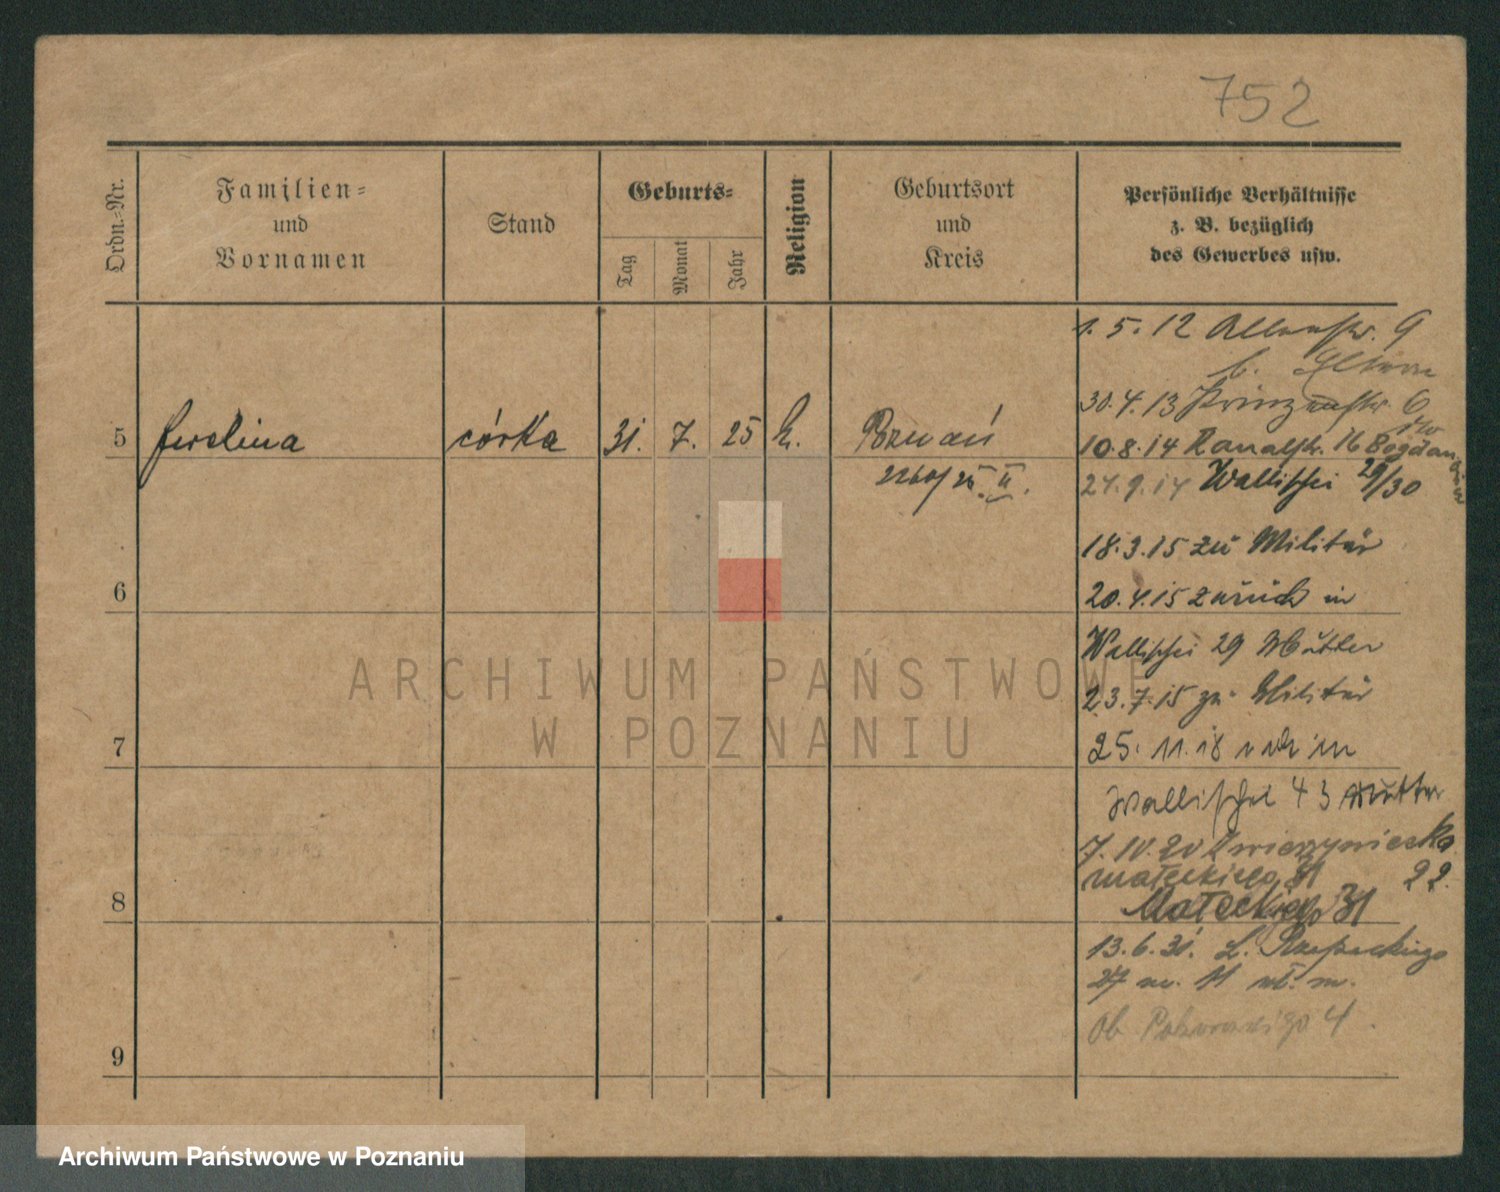 752
Ordn.=Nr.
Familien=
und
Vornamen
Stand
Geburts=
Tag
Monat
Jahr
Religion
Geburtsort
und
Kreis
Persönliche Verhältnisse
z. B. bezüglich
des Gewerbes usw.
1. 5. 12 9
b.
30.4.13 Prinzenstr. 6
5 córka 31. 7. 25 k. Poznań
10.8.14 Kanalstr. 16 Bogdanowicz
2260/25 II.
24.9.14 Wallischei 29/30
18.3.15 zu Militär
6
20.4.15 zurück in
Wallischei 29 Mutter
23.7.15 zu Militär
7
25. 11. 18 in
Wallischei 43 Mutter
7. IV. 20 Zwierzyniecka
22.
Małeckiego 31
8
Małeckiego 31
13.6.31. L. Rzepeckiego
27 m. 11
4.
9
ARCHIWUM PAŃSTWOWE
W POZNANIU
Archiwum Państwowe w Poznaniu